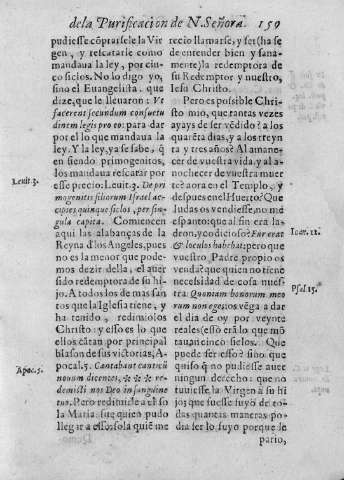 dela Purificacion de N. Señora. 159
pudiesse cõprarsele la Vir
gen, y rescatarse como
mandaua la ley, por cin-
co siclos. No lo digo yo,
sino el Euangelista. que
dize, que le lleuaron: Vt
facerent secundum consuetu
dinem legis pro eo: para dar
por el lo que mandaua la
ley. Y la ley, ya se sabe, q̃
en siendo primogenitos,
los mandaua rescatar por
esse precio: Leuit. 3. De pri
mogenitis filiorum Israel ac
cipies quinque siclos, per sin
gula capita. Comiencen
aqui las alabanças de la
Reyna d'los Angeles, pues
no es la menor que pode-
mos dezir della, el auer
sido redemptora de su hi-
jo. A todos los demas san
tos que la Iglesia tiene, y
ha tenido, redimiolos
Christo: y esso es lo que
ellos cãtan por principal
blason de sus victorias, A-
pocal. 5. Cantabant canticũ
nouum dicentes, * * * re-
demisti nos Deo in sanguine
tuo. Pero redimirle a el so
la Maria fue quien pudo
llegar a esso: sola quiẽ me
Leuit. 3.
Apoc. 5.
recio llamarse, y ser (ha se
de entender bien y sana-
mente) la redemptora de
su Redemptor y nuestro,
Iesu Christo.
Pero es possible Chri-
sto mio, que tantas vezes
ayays de ser vẽdido? a los
quarẽta dias, y a los treyn
ta y tres años? Al amane-
cer de vuestra vida, y al a-
nochecer de vuestra muer
te? aora en el Templo, y
despues en el Huerto? Que
Iudas os vendiesse, no me
espanto: que al fin era la-
dron, y codicioso? Fur erat
& loculos habebat: pero que
vuestro Padre proprio os
venda? que quien no tiene
necessidad de cosa nues-
tra: Quoniam bonorum meo
rum non eges: os vẽga a dar
el dia de oy por veynte
reales (esso erã lo que mõ
tauan cinco siclos. Que
puede ser esto? sino que
quiso q̃ no pudiesse auer
ningun derecho: que no
tuuiesse la Virgen a su hi
jo: que fuesse suyo de to-
das quantas maneras po-
dia ser lo suyo porque le
Ioan. 12.
Psal. 15.
pario,